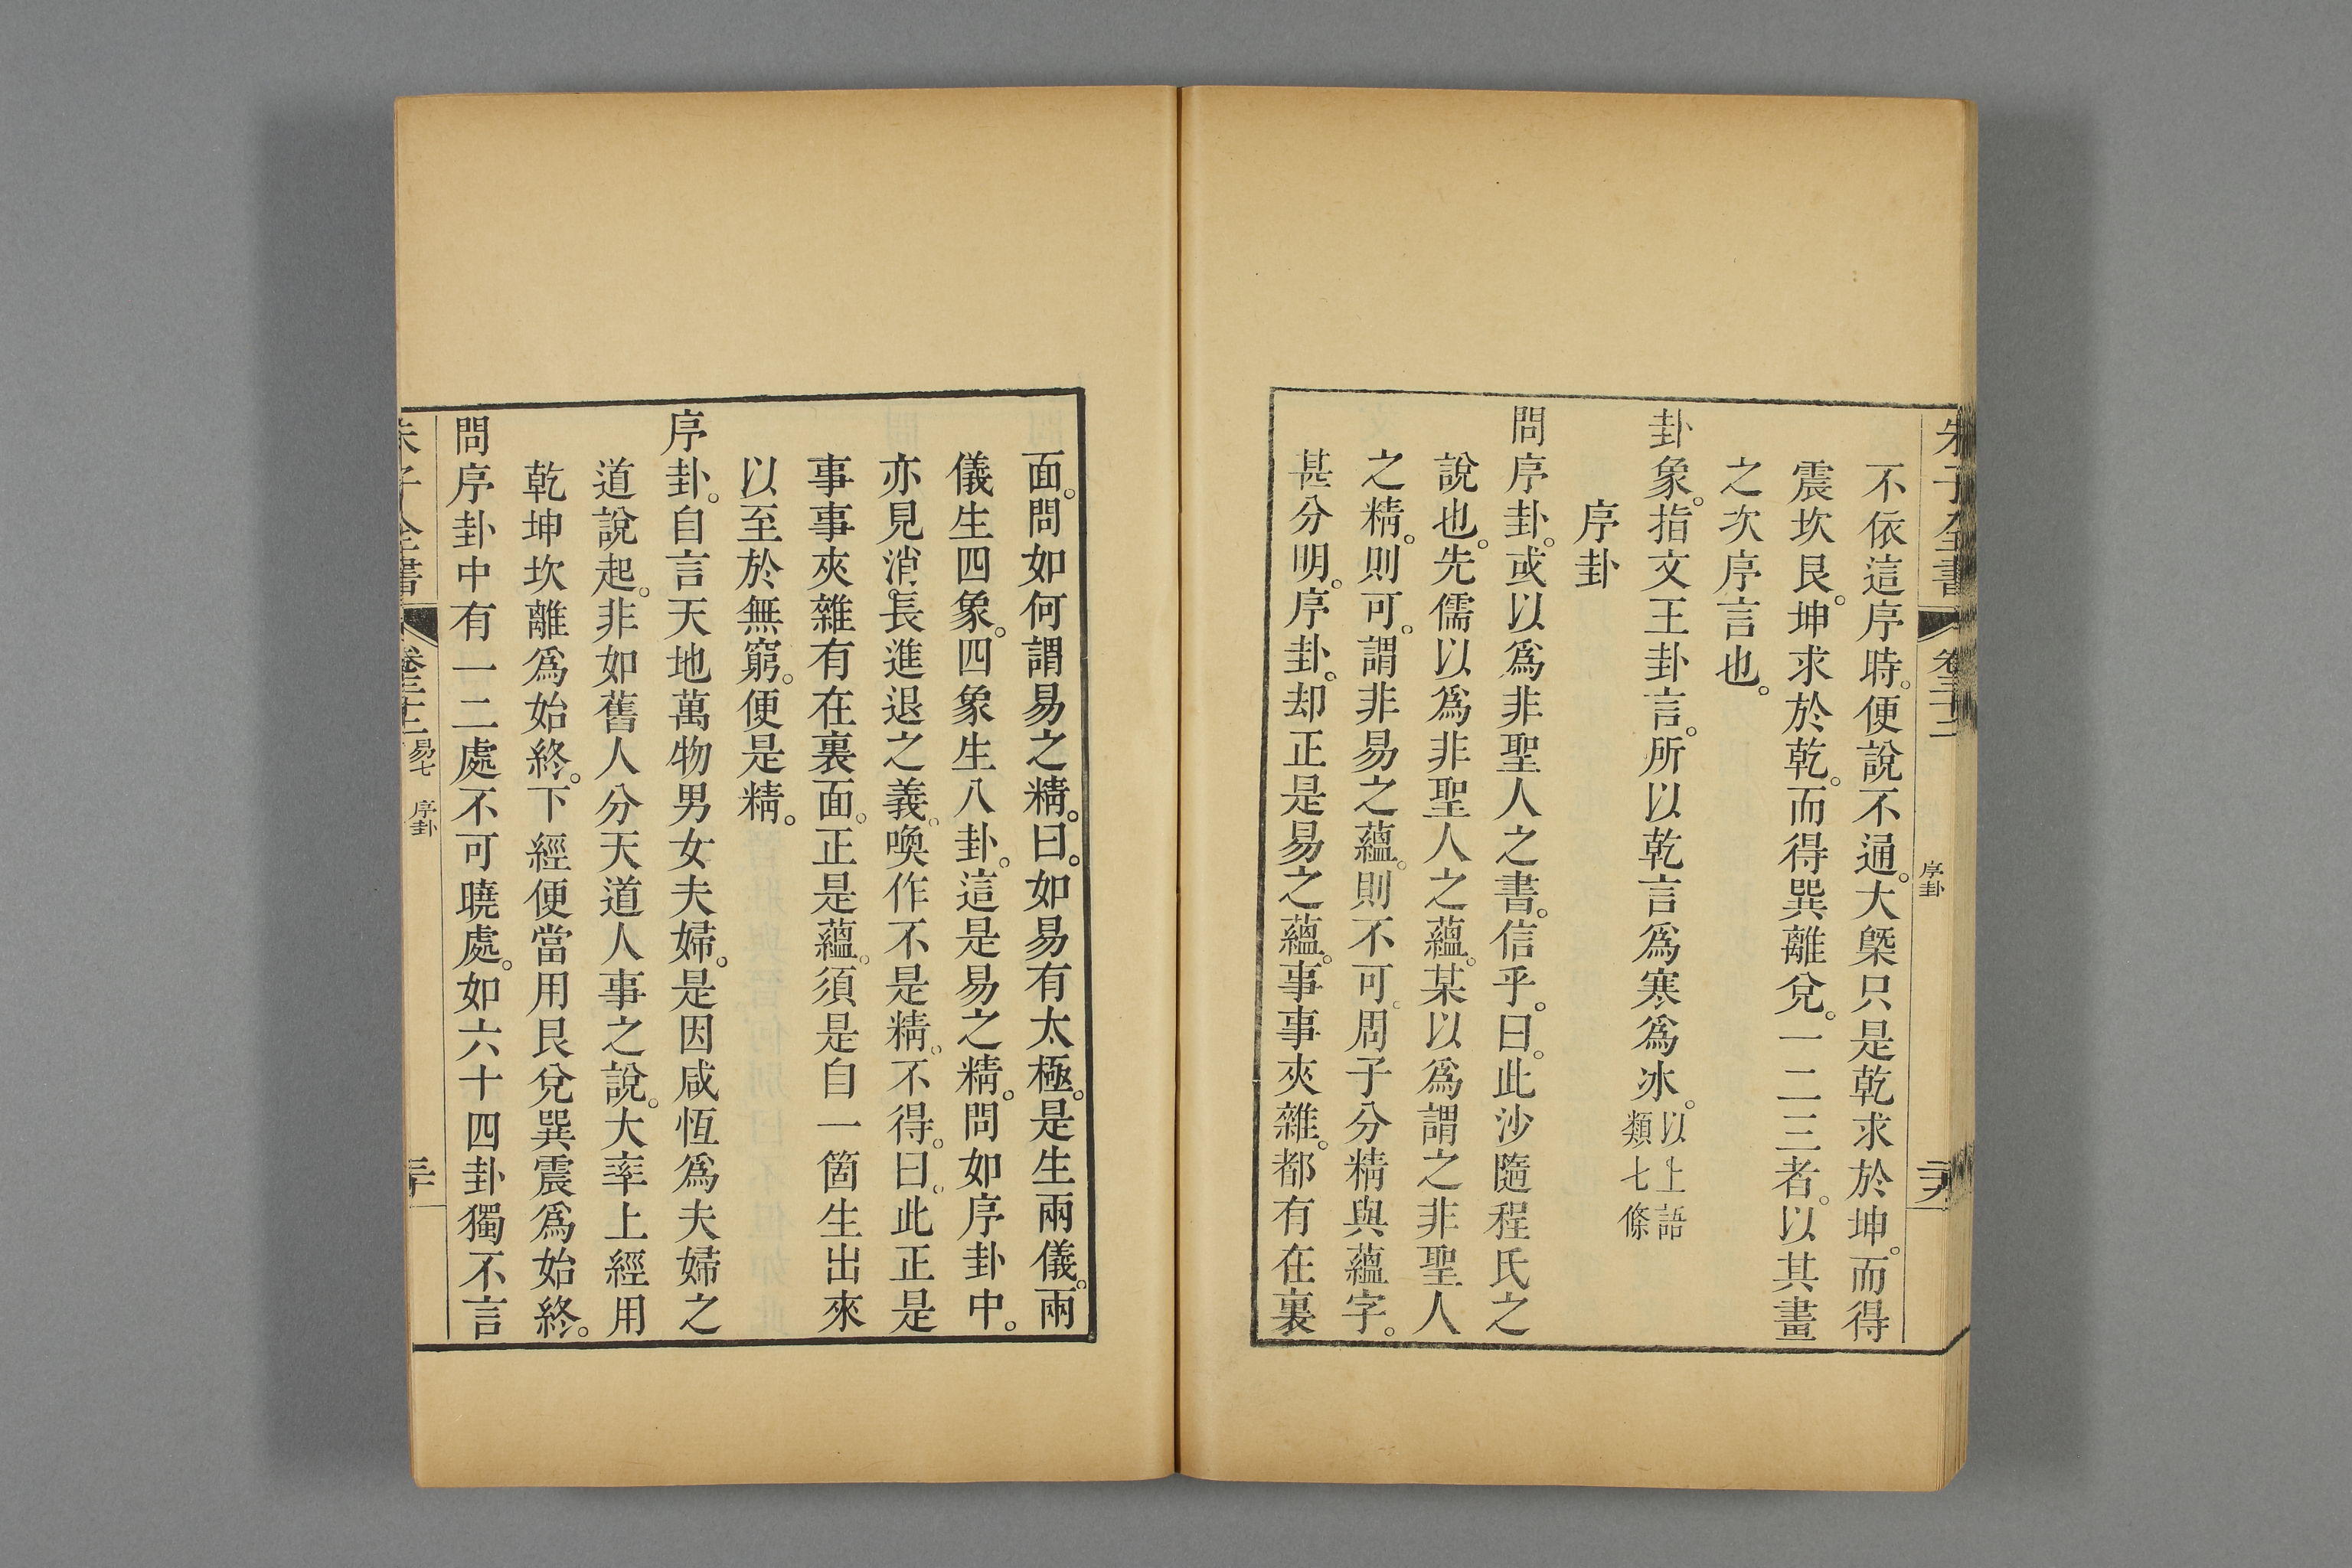 朱子全書 卷三十二 序卦 二十九
不依這序時。便說不通。大槩只是乾求於坤。而得
震坎艮。坤求於乾。而得巽離兌。一二三者。以其畫
之次序言也。
卦象。指文王卦言。所以乾言爲寒爲冰。以上語
類七條
序卦
問序卦。或以爲非聖人之書。信乎。曰。此沙隨程氏之
說也。先儒以爲非聖人之蘊。某以爲謂之非聖人
之精。則可。謂非易之蘊。則不可。周子分精與蘊字。
甚分明。序卦。却正是易之蘊。事事夾雜。都有在裏
面。問如何謂易之精。曰。如易有太極。是生兩儀。兩
儀生四象。四象生八卦。這是易之精。問如序卦中。
亦見消長進退之義。喚作不是精。不得。曰。此正是
事事夾雜有在裏面。正是蘊。須是自一箇生出來
以至於無窮。便是精。
序卦。自言天地萬物男女夫婦。是因咸恆爲夫婦之
道說起。非如舊人分天道人事之說。大率上經用
乾坤坎離爲始終。下經便當用艮兌巽震爲始終。
問序卦中有一二處不可曉處。如六十四卦獨不言
朱子全書 卷三十二 易七 序卦 三十